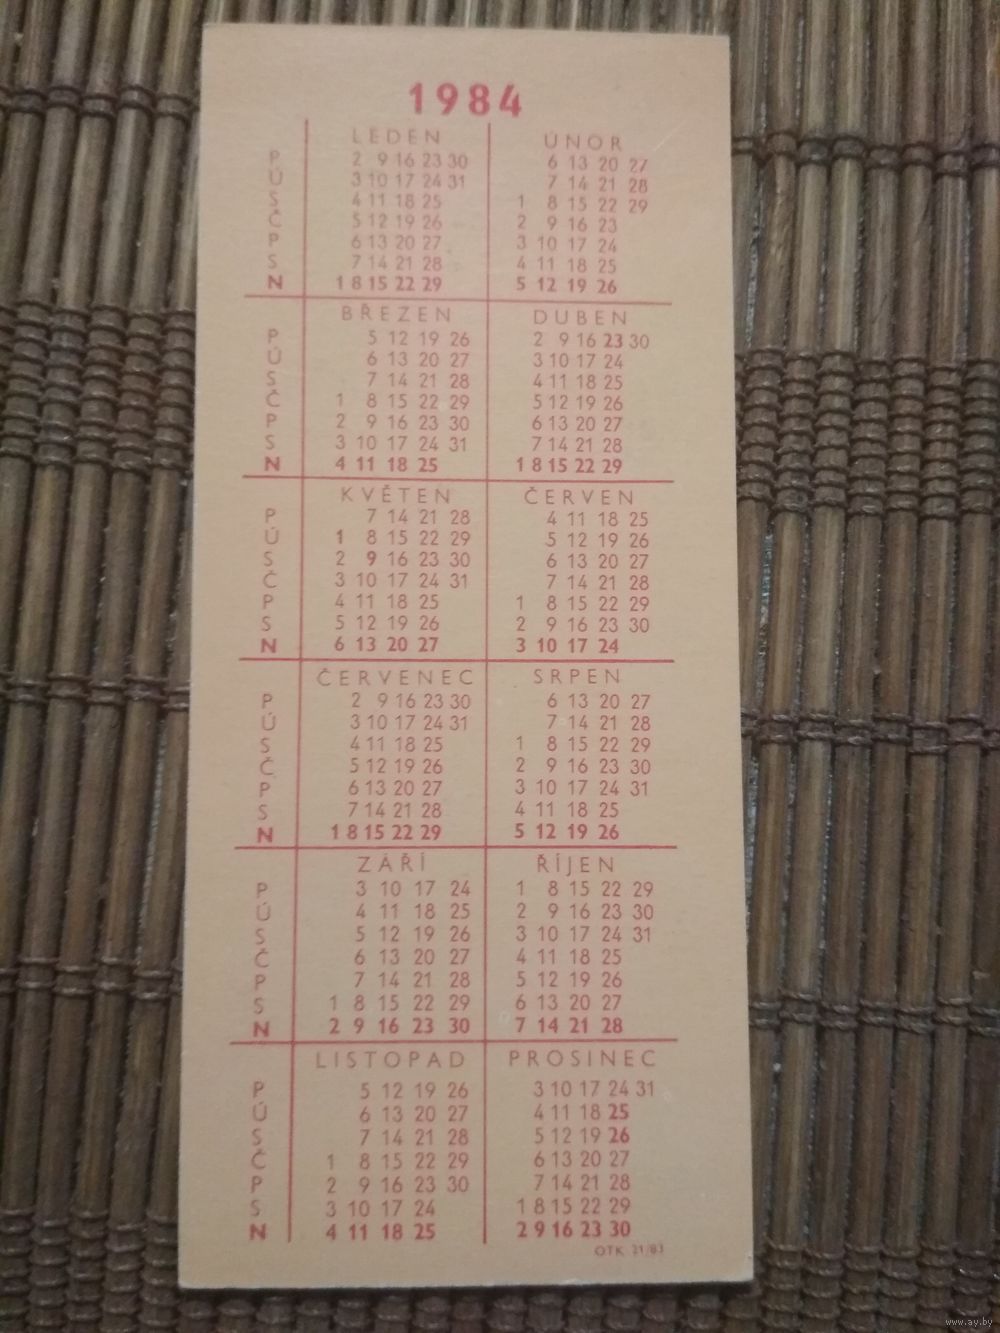 1984
LEDEN ÚNOR
P 2 9 16 23 30 6 13 20 27
Ú 3 10 17 24 31 7 14 21 28
S 4 11 18 25 1 8 15 22 29
Č 5 12 19 26 2 9 16 23
P 6 13 20 27 3 10 17 24
S 7 14 21 28 4 11 18 25
N 1 8 15 22 29 5 12 19 26
BŘEZEN DUBEN
P 5 12 19 26 2 9 16 23 30
Ú 6 13 20 27 3 10 17 24
S 7 14 21 28 4 11 18 25
Č 1 8 15 22 29 5 12 19 26
P 2 9 16 23 30 6 13 20 27
S 3 10 17 24 31 7 14 21 28
N 4 11 18 25 1 8 15 22 29
KVĚTEN ČERVEN
P 7 14 21 28 4 11 18 25
Ú 1 8 15 22 29 5 12 19 26
S 2 9 16 23 30 6 13 20 27
Č 3 10 17 24 31 7 14 21 28
P 4 11 18 25 1 8 15 22 29
S 5 12 19 26 2 9 16 23 30
N 6 13 20 27 3 10 17 24
ČERVENEC SRPEN
P 2 9 16 23 30 6 13 20 27
Ú 3 10 17 24 31 7 14 21 28
S 4 11 18 25 1 8 15 22 29
Č 5 12 19 26 2 9 16 23 30
P 6 13 20 27 3 10 17 24 31
S 7 14 21 28 4 11 18 25
N 1 8 15 22 29 5 12 19 26
ZÁŘÍ ŘÍJEN
P 3 10 17 24 1 8 15 22 29
Ú 4 11 18 25 2 9 16 23 30
S 5 12 19 26 3 10 17 24 31
Č 6 13 20 27 4 11 18 25
P 7 14 21 28 5 12 19 26
S 1 8 15 22 29 6 13 20 27
N 2 9 16 23 30 7 14 21 28
LISTOPAD PROSINEC
P 5 12 19 26 3 10 17 24 31
Ú 6 13 20 27 4 11 18 25
S 7 14 21 28 5 12 19 26
Č 1 8 15 22 29 6 13 20 27
P 2 9 16 23 30 7 14 21 28
S 3 10 17 24 1 8 15 22 29
N 4 11 18 25 2 9 16 23 30
OTK 31/83
www.ay.by